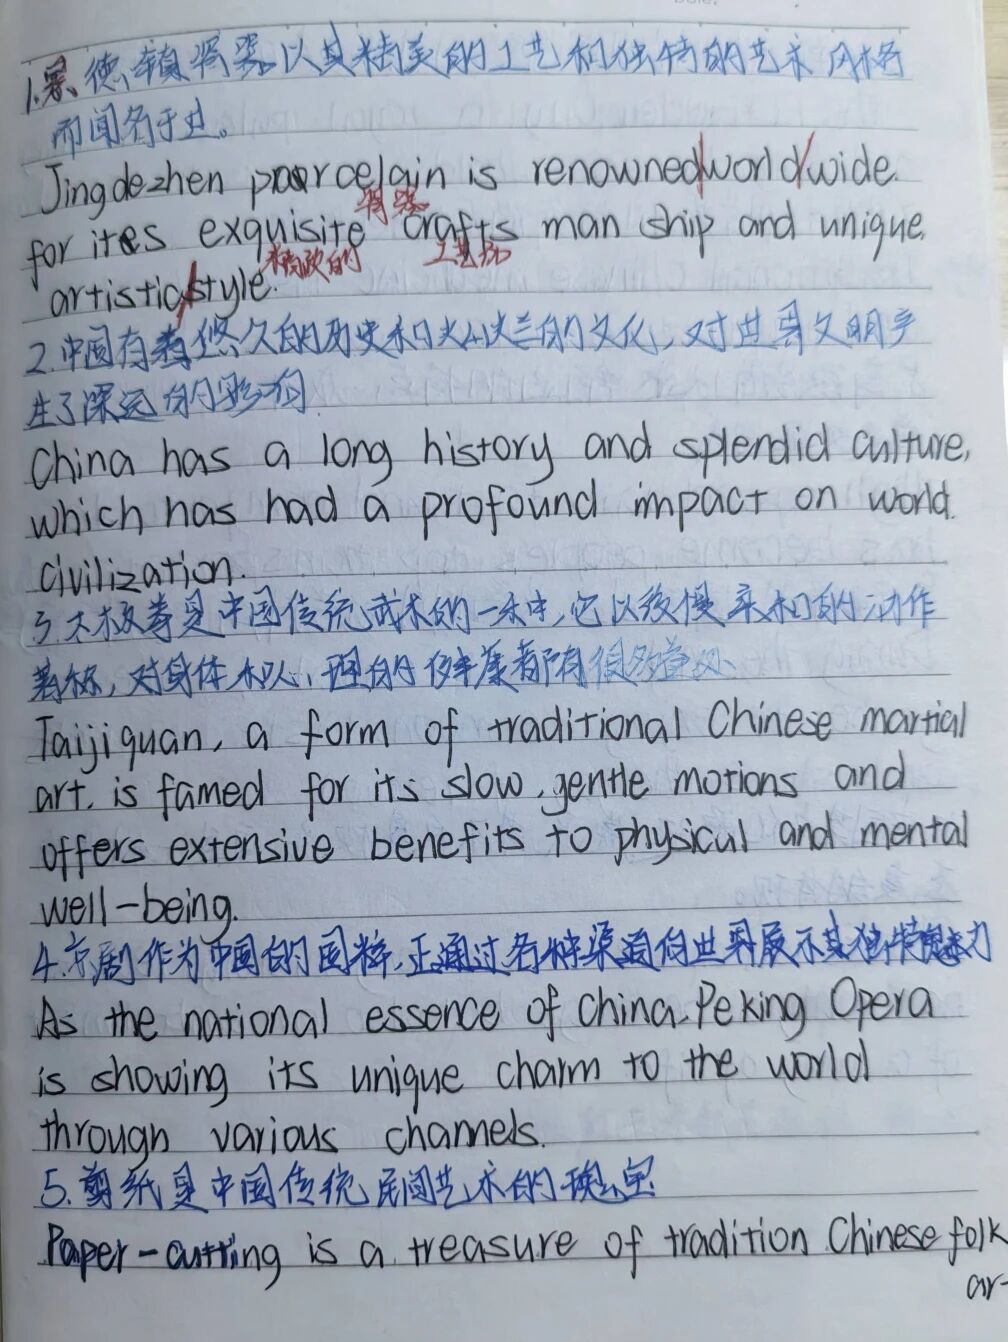 1.景德镇瓷器以其精美的工艺和独特的艺术风格
而闻名于世。
Jingdezhen porcelain is renowned worldwide
for its exquisite crafts man ship and unique
精致的 工艺
artistic style.
2.中国有着悠久的历史和灿烂的文化,对世界文明产
生了深远的影响
China has a long history and splendid culture,
which has had a profound impact on world
civilization.
3.太极拳是中国传统武术的一种,它以缓慢柔和的动作
著称,对身体和心理的健康都有很多益处
Taijiquan, a form of traditional Chinese martial
art, is famed for its slow, gentle motions and
offers extensive benefits to physical and mental
well-being.
4.京剧作为中国的国粹,正通过各种渠道向世界展示其独特魅力
As the national essence of China, Peking Opera
is showing its unique charm to the world
through various channels.
5.剪纸是中国传统民间艺术的瑰宝
Paper-cutting is a treasure of tradition Chinese folk
ar-